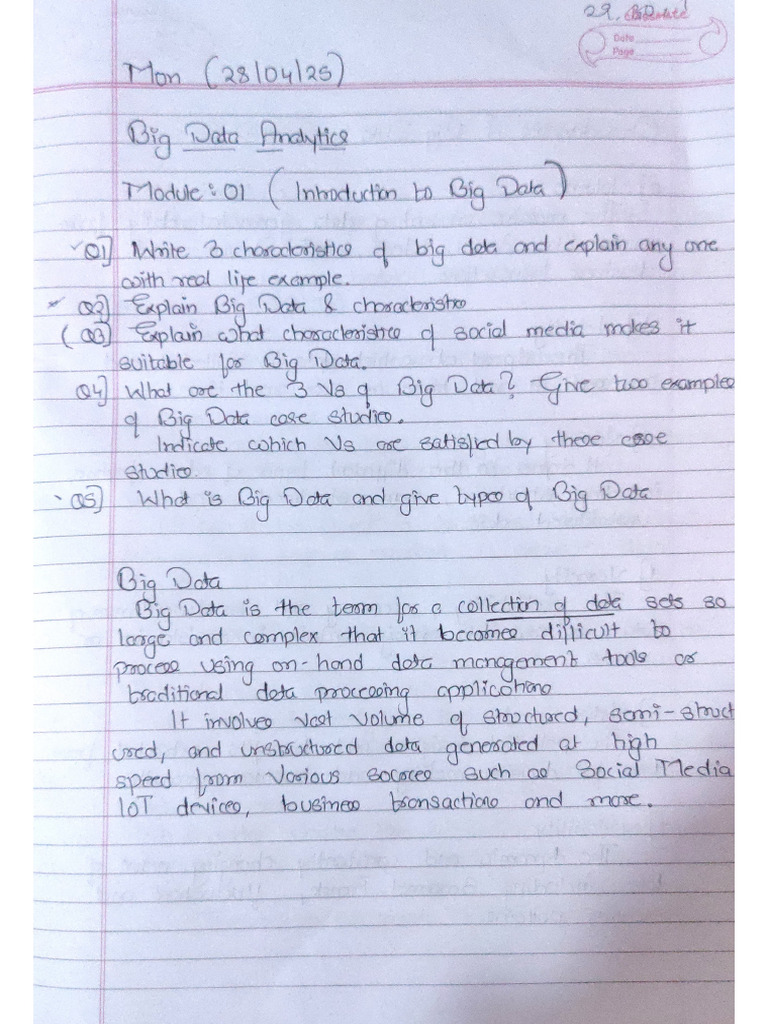 29.
Date
Page
Mon (28/04/25)
Big Data Analytics
Module: 01 (Introduction to Big Data)
Q1] Write 3 characteristics of big data and explain any one
with real life example.
Q2] Explain Big Data & characteristics
(Q3] Explain what characteristics of social media makes it
suitable for Big Data.
Q4] What are the 3 Vs of Big Data? Give two examples
of Big Data case studies.
Indicate which Vs are satisfied by these case
studies.
Q5] What is Big Data and give types of Big Data
Big Data
Big Data is the term for a collection of data sets so
large and complex that it becomes difficult to
process using on-hand data management tools or
traditional data processing applications
It involves vast volume of structured, semi-struct
ured, and unstructured data generated at high
speed from various sources such as Social Media
IoT devices, business transactions and more.